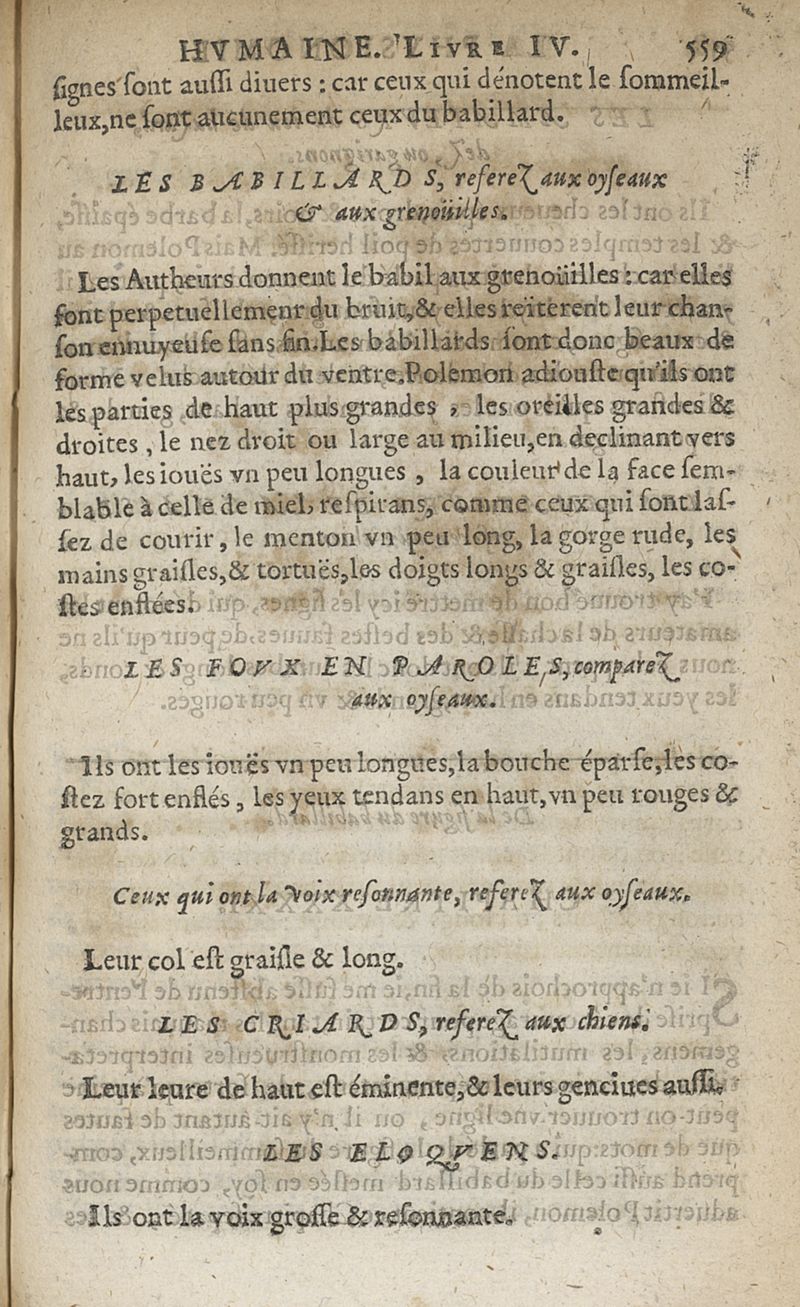 HVMAINE. LIVRE IV. 559
ſignes ſont auſſi diuers : car ceux qui dénotent le ſommeil-
leux,ne ſont aucunement ceux du babillard.
LES BABILLARDS, referez aux oyſeaux
& aux grenoüilles.
Les Autheurs donnent le babil aux grenoüilles : car elles
font perpetuellement du bruit,& elles reïterent leur chan-
ſon ennuyeuſe ſans fin.Les babillards ſont donc beaux de
forme velus autour du ventre.Polemon adiouſte qu'ils ont
les parties de haut plus grandes , les oreilles grandes &
droites , le nez droit ou large au milieu,en declinant vers
haut, les iouës vn peu longues , la couleur de la face ſem-
blable à celle de miel, reſpirans, comme ceux qui ſont laſ-
ſez de courir , le menton vn peu long, la gorge rude, les
mains graiſles,& tortuës,les doigts longs & graiſles, les co-
ſtes enflées.
LES FOVX EN PAROLES, comparez
aux oyſeaux.
Ils ont les iouës vn peu longues,la bouche éparſe,les co-
ſtez fort enflés , les yeux tendans en haut,vn peu rouges &
grands.
Ceux qui ont la voix reſonnante, referez aux oyſeaux.
Leur col eſt graiſle & long.
LES CRIARDS, referez aux chiens.
Leur leure de haut eſt éminente,& leurs genciues auſſi.
LES ELOQVENS.
Ils ont la voix groſſe & reſonnante.